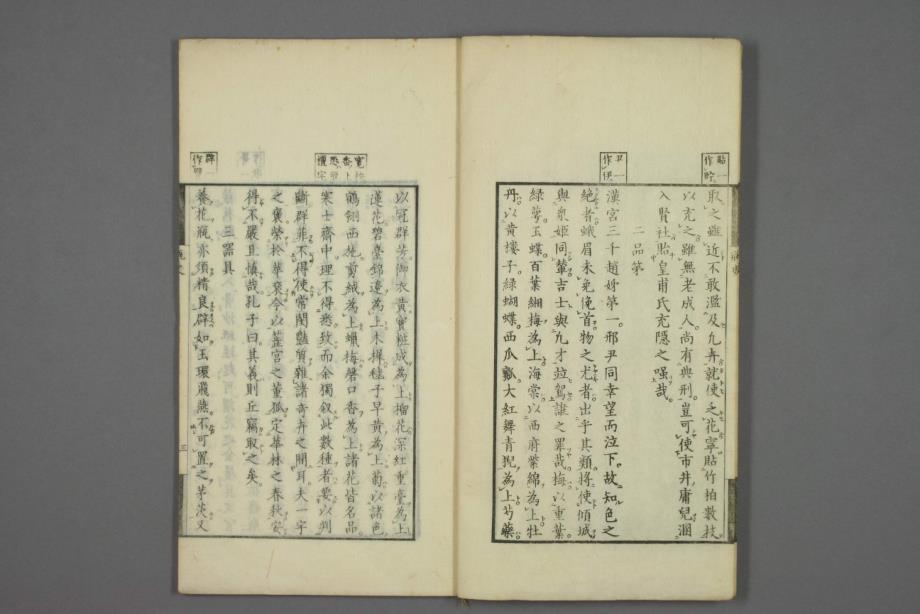 貼一
作貯
取之雖近不敢濫及凡卉就使乏花寧貼竹柏數枝
以充之雖無老成人尚有典刑豈可使市井庸兒溷
入賢社貽皇甫氏充隱之嗤哉
二品第
尹一
作
漢宮三千趙姊第一邢尹同幸望而泣下故知色之
絕者蛾眉未免俛首物之尤者出乎其類將使傾城
與衆姬同輦吉士與凡才並駕誰之罪哉梅以重葉
綠萼玉蝶百葉緗梅為上海棠以西府紫綿為上牡
丹以黃樓子綠蝴蝶西瓜瓤大紅舞青猊為上芍藥
以冠群芳御衣黃寶粧成為上榴花深紅重臺為上
蓮花碧臺錦邊為上木樨毬子早黃為上菊以諸色
鶴翎西施剪絨為上蠟梅磬口香為上諸花皆名品
寒士齋中理不得悉致而余獨叙此數種者要以判
斷群菲不得使常閨艷質雜諸奇卉之間耳夫一字
之褒榮於華袞今以蘂宮之董狐定華林之春秋安
得不嚴且慎哉孔子曰其義則丘竊取之矣
三器具
養花瓶亦須精良辟如玉環飛燕不可置之茅茨又